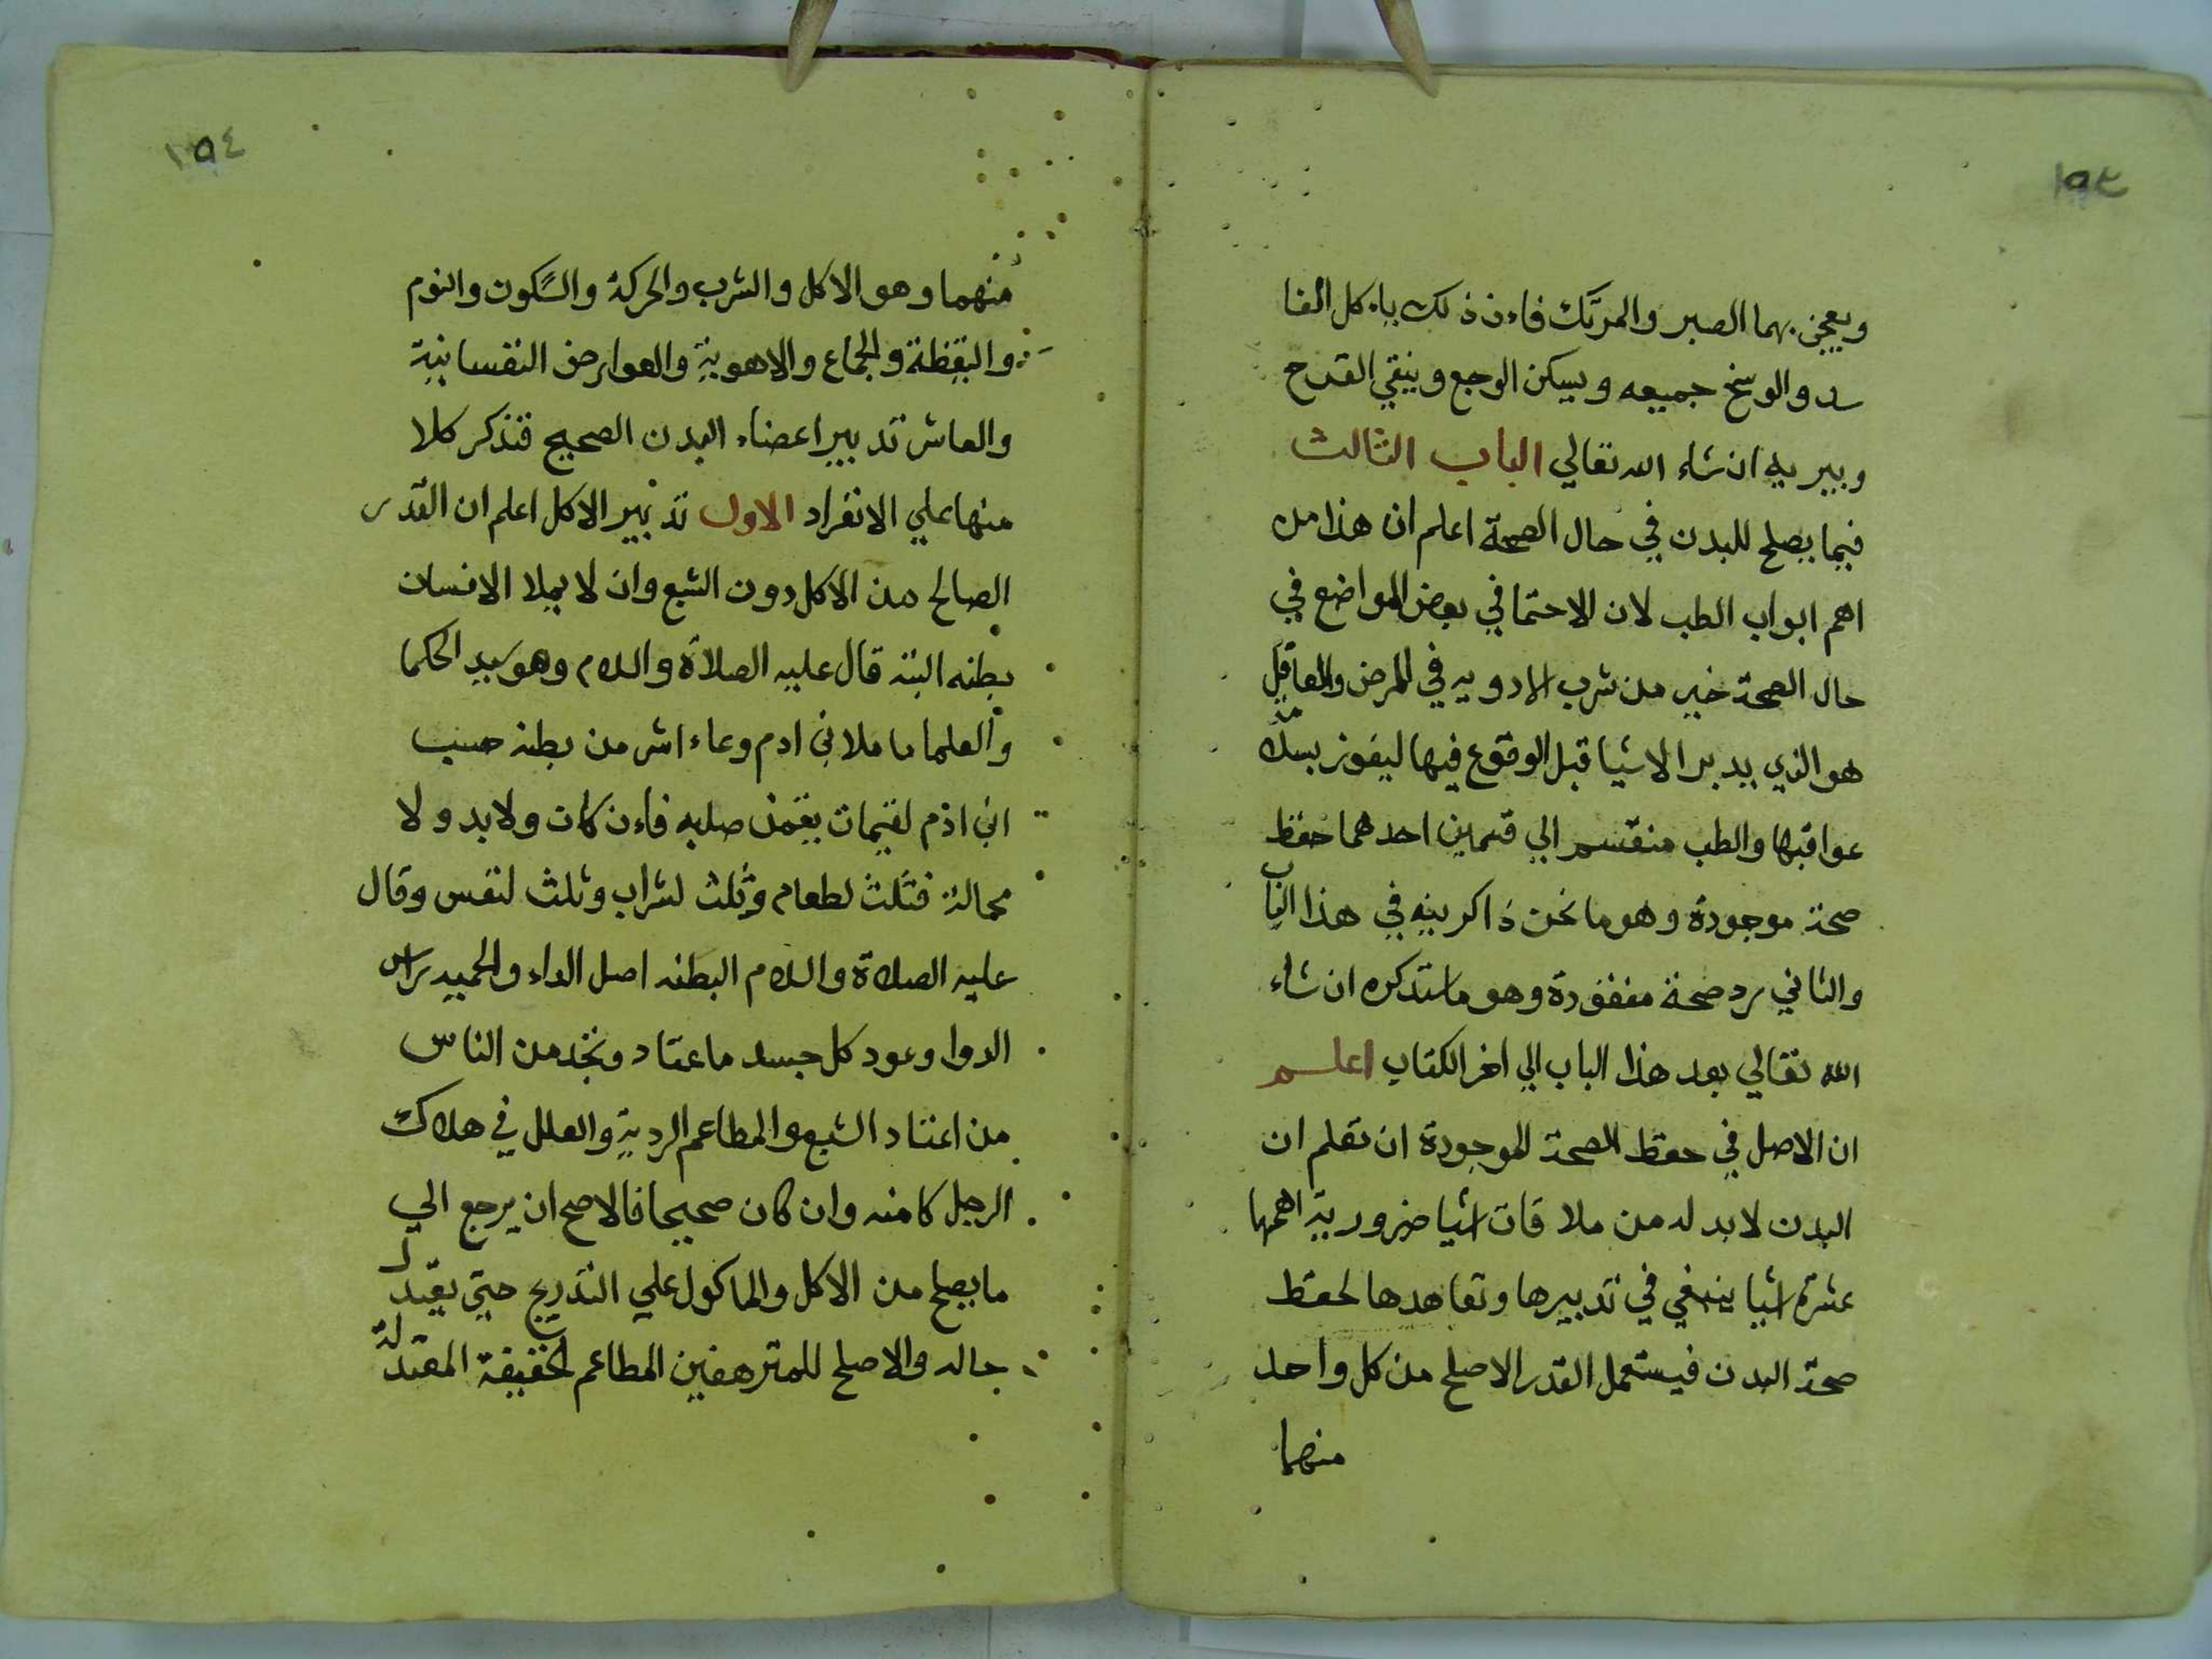 ١٥٣
ويعجن بهما الصبر والمرتك فاءن ذلك ياءكل الفا
سد والوسخ جميعه ويسكن الوجع وينقي القرح
ويبريه ان شاء الله تعالي الباب الثالث
فيما يصلح للبدن في حال الصحة اعلم ان هذا من
اهم ابواب الطب لان الاحتما في بعض المواضع في
حال الصحة خير من شرب الادويه في المرض والعاقل
هو الذي يدبر الاشيا قبل الوقوع فيها ليفوز بسلامة
عواقبها والطب منقسم الي قسمين احدهما حفظ
صحة موجودة وهو ما نحن ذاكرينه في هذا الباب
والثاني رد صحة مفقودة وهو ما ستذكره ان شاء
الله تعالي بعد هذا الباب الي اخر الكتاب اعلم
ان الاصل في حفظ الصحة الموجودة ان تعلم ان
البدن لابد له من ملاقات اشيا ضرورية اهمها
عشرة اشيا ينبغي في تدبيرها وتعاهدها لحفظ
صحة البدن فيستعمل القدر الاصلح من كل واحد
منهما
١٥٤
منهما وهو الاكل والشرب والحركة والسكون والنوم
واليقظة والجماع والاهوية والعوارض النفسانية
والعاشر تدبير اعضاء البدن الصحيح فنذكر كلا
منها علي الانفراد الاول تدبير الاكل اعلم ان القدر
الصالح من الاكل دون الشبع وان لا يملا الانسان
بطنه البته قال عليه الصلاة والسلام وهو سيد الحكما
والعلما ما ملا بني ادم وعاء اشر من بطنه حسب
ابن ادم لقيمات يقمن صلبه فاءن كان ولابد ولا
محالة فثلث لطعام وثلث لشراب وثلث لنفس وقال
عليه الصلاة والسلام البطنه اصل الداء والحميه راس
الدوا وعود كل جسد ما عتاد ونجد من الناس
من اعتاد الشبع والمطاعم الردية والعلل في هلاك
الرجل كامنه وان كان صحيحا فالاصح ان يرجع الي
ما يصلح من الاكل والماكول علي التدريج حتي يعتدل
حاله والاصلح للمترهفين المطاعم الخفيفة المعتدلة